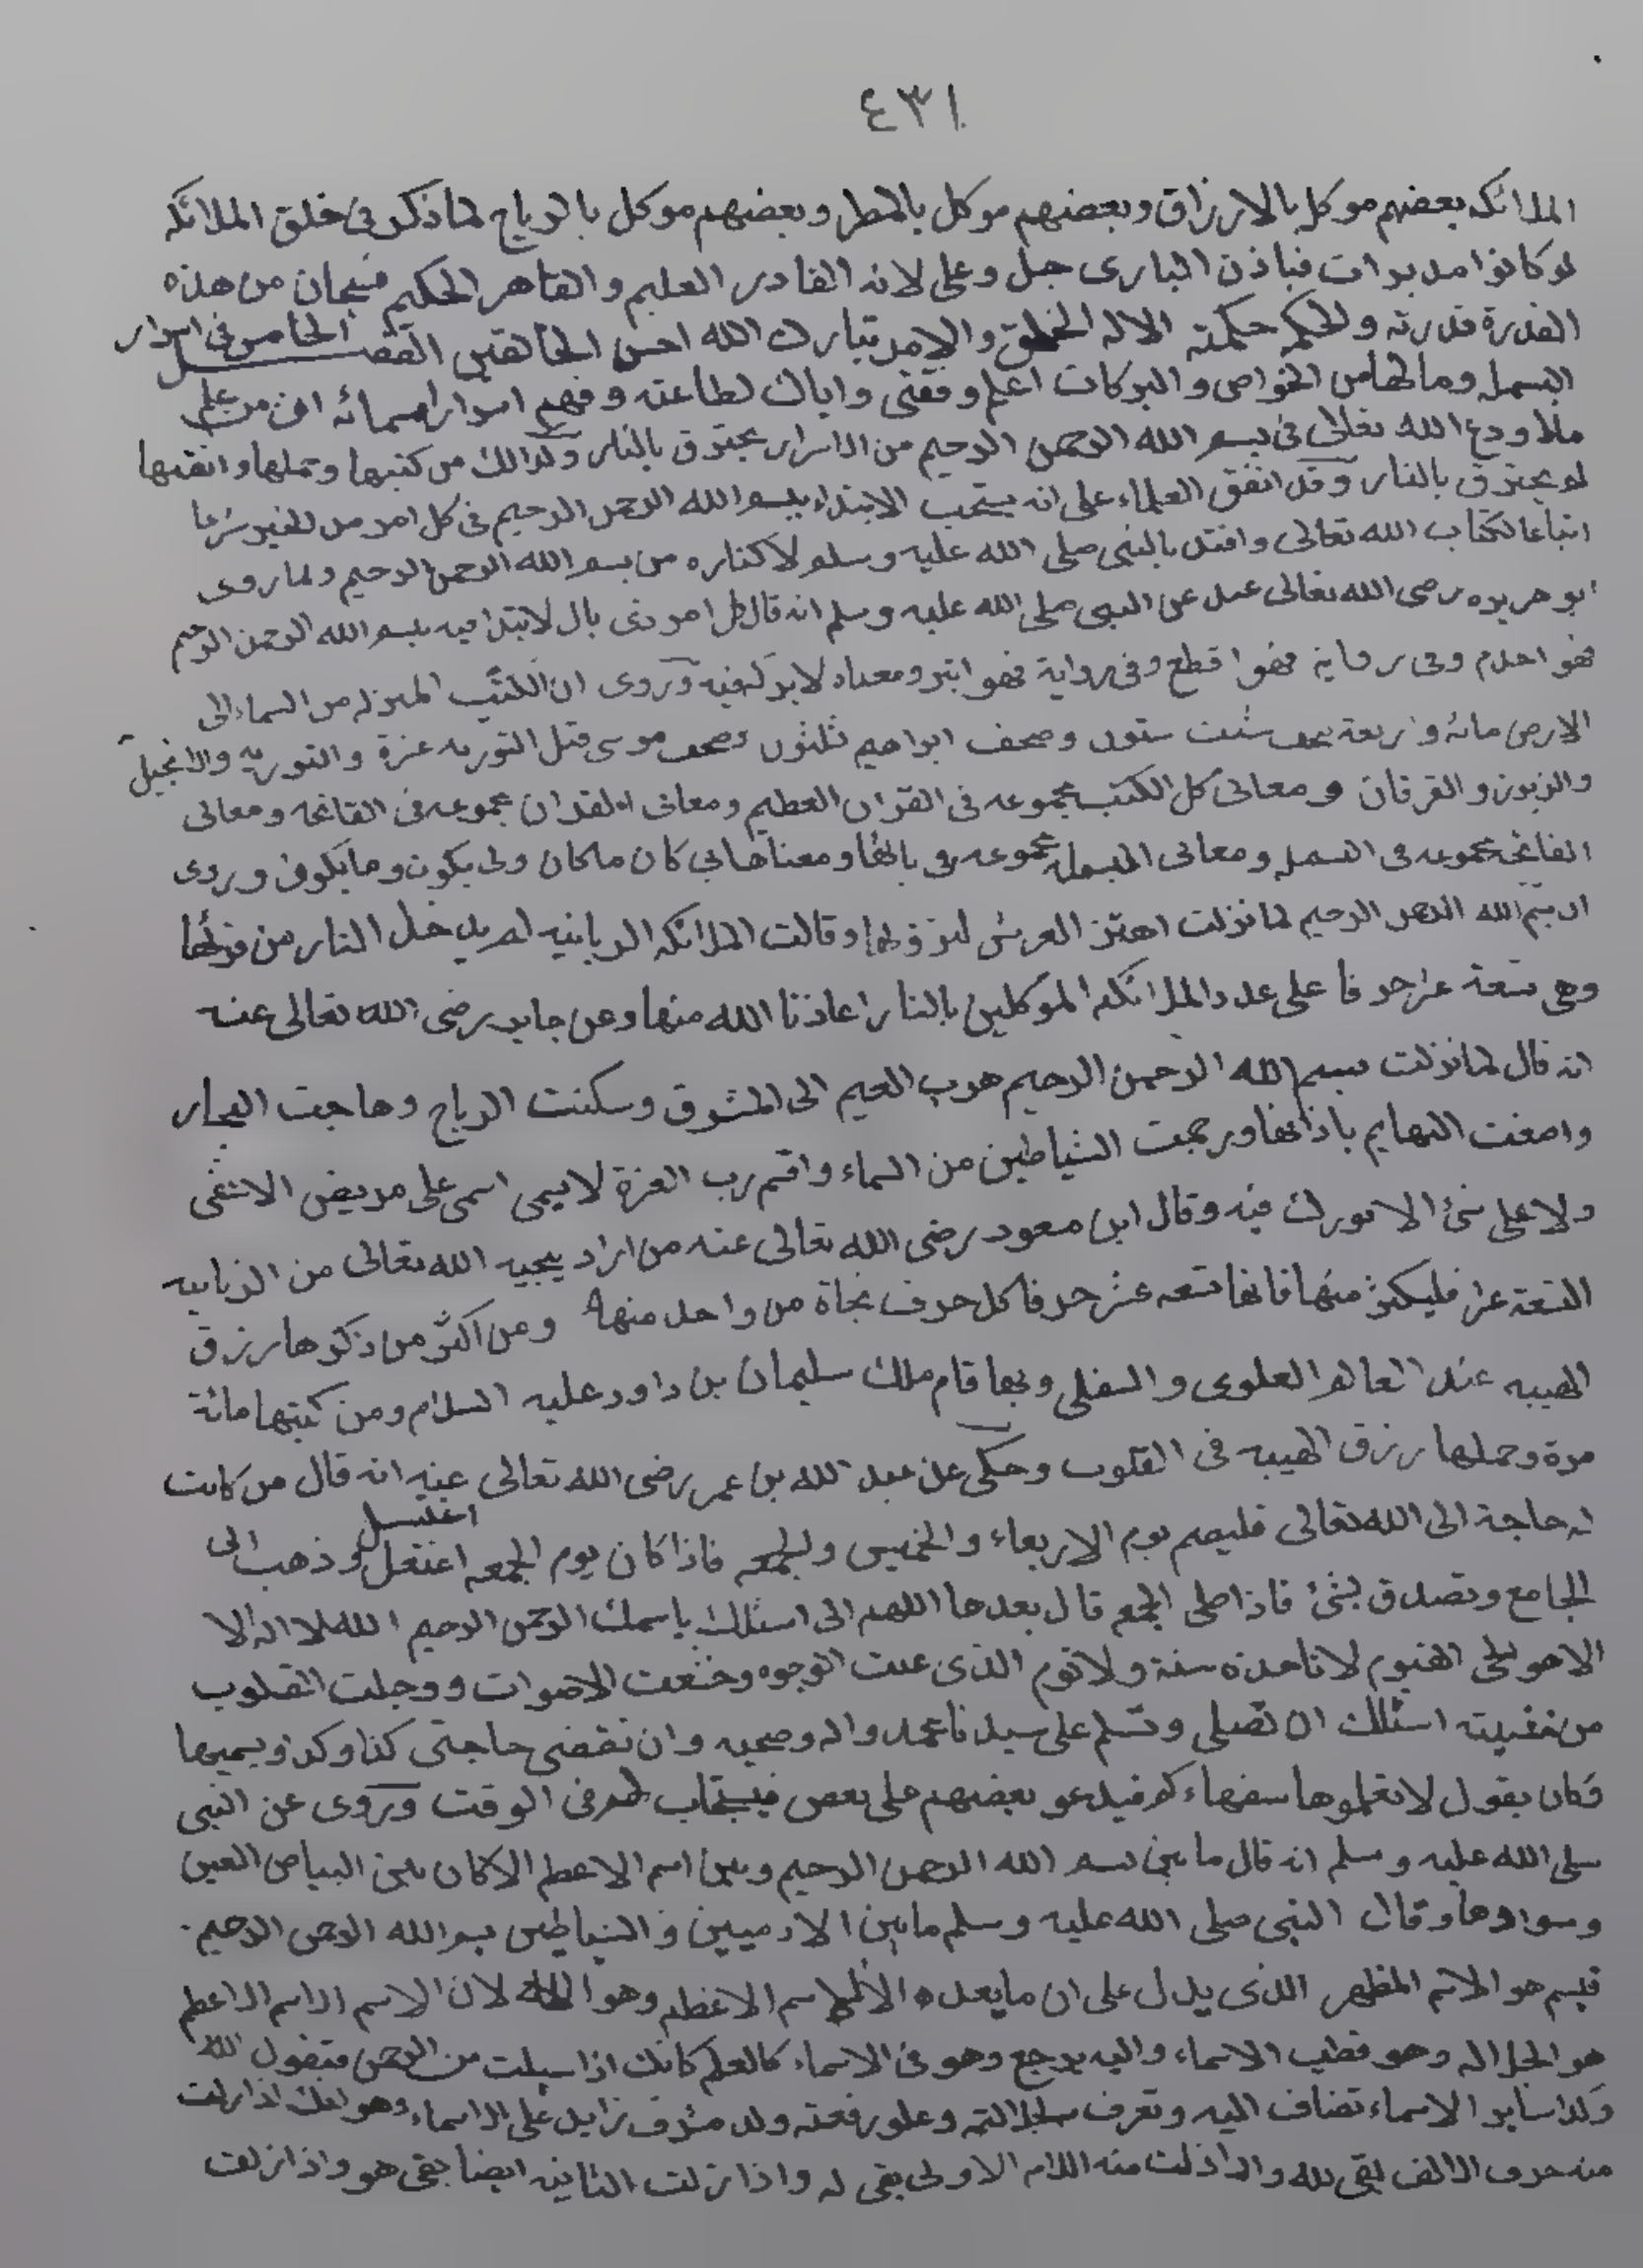 ٤٣١
الملائكه بعضهم موكل بالارزاق وبعضهم موكل بالمطر وبعضهم موكل بالرياح لما ذكر فى خلق الملائكه
لو كانوا مدبرات فباذن البارى جل وعلى لانه القادر العليم والقاهر الحكيم فسبحان من هذه
القدرة قدرته والحكم حكمته الا له الخلق والامر تبارك الله احسن الخالقين الفصل الخامس فى اسرار
البسمله وما لها من الخواص والبركات اعلم وفقنى واياك لطاعته وفهم اسرار اسمائه ان من علم
ما اودع الله تعالى فى بسم الله الرحمن الرحيم من الاسرار لم يحترق بالنار وكذالك من كتبها وحملها واتقنها
لم يحترق بالنار وقد اتفق العلماء على انه يستحب الابتداء ببسم الله الرحمن الرحيم فى كل امر من الخير شرعا
اتباعا لكتاب الله تعالى واقتد بالنبى صلى الله عليه وسلم لاكثاره من بسم الله الرحمن الرحيم ولما روى
ابو هريره رضى الله تعالى عنه عن النبى صلى الله عليه وسلم انه قال كل امر ذى بال لا يبتدا فيه ببسم الله الرحمن الرحيم
فهو اجذم وفى رواية فهو اقطع وفى رواية فهو ابتر ومعناه لا بركة فيه وروى ان الكتب المنزله من السماء الى
الارض مائة واربعة صحف شيث ستون وصحف ابراهيم ثلثون وصحف موسى قبل التوريه عشرة والتوريه والانجيل
والزبور والفرقان ومعانى كل الكتب مجموعه فى القران العظيم ومعانى القران مجموعه فى الفاتحه ومعانى
الفاتحه مجموعه فى البسمله ومعانى البسمله مجموعه فى بائها ومعناها بى كان ما كان وبى يكون وما يكون وروى
ان بسم الله الرحمن الرحيم لما نزلت اهتز العرش لنزولها وقالت الملائكه الربانيه لم يدخل النار من قرئها
وهى تسعة عشر حرفا على عدد الملائكه الموكلين بالنار اعاذنا الله منها وعن جابر رضى الله تعالى عنه
انه قال لما نزلت بسم الله الرحمن الرحيم هرب الغيم الى المشرق وسكنت الرياح وهاجت البحار
واصغت البهايم باذانها ورجمت الشياطين من السماء واقسم رب العزة لا يسمى اسمى على مريض الا شفى
ولا على شئ الا بورك فيه وقال ابن مسعود رضى الله تعالى عنه من اراد ينجيه الله تعالى من الزبانيه
التسعة عشر فليكثر منها فانها تسعه عشر حرفا كل حرف نجاة من واحد منها ومن اكثر من ذكرها رزق
الهيبه عند العالم العلوى والسفلى وبها قام ملك سليمان بن داود عليه السلام ومن كتبها مائة
مرة وحملها رزق الهيبه فى القلوب وحكى عن عبد الله بن عمر رضى الله تعالى عنه انه قال من كانت
له حاجة الى الله تعالى فليصم يوم الاربعاء والخميس والجمعه فاذا كان يوم الجمعه اغتسل وذهب الى
الجامع وتصدق بشئ فاذا صلى الجمعه قال بعدها اللهم انى اسئلك باسمك الرحمن الرحيم الله لا اله الا
الا هو الحى القيوم لا تاخذه سنة ولا نوم الذى عنت الوجوه وخشعت الاصوات ووجلت القلوب
من خشيته اسئلك ان تصلى وتسلم على سيدنا محمد واله وصحبه وان تقضى حاجتى كذا وكذا ويسميها
وكان يقول لا تعلموها سفهاءكم فيدعو بعضهم على بعض فيستجاب لهم فى الوقت وروى عن النبى
صلى الله عليه وسلم انه قال ما بين بسم الله الرحمن الرحيم وبين اسم الاعظم الا كان بين البياض العين
وسوادها وقال النبى صلى الله عليه وسلم ما بين الادميين والشياطين بسم الله الرحمن الرحيم
فبسم هو الاسم المظهر الذى يدل على ان ما بعده الاسم الاعظم وهو الله لان الاسم الاعظم
هو الجلاله وهو قطب الاسماء واليه يرجع وهو فى الاسماء كالعلم كانك اذا سيلت من الرحمن فتقول الله
وكذا ساير الاسماء تضاف اليه وتعرف بجلالته وعلو رفعته وله شرف زايد على الاسماء وهو انك اذا زلت
منه حرف الالف بقى لله واذا زلت منه اللام الاولى بقى له واذا زلت الثانيه ايضا بقى هو واذا زلت